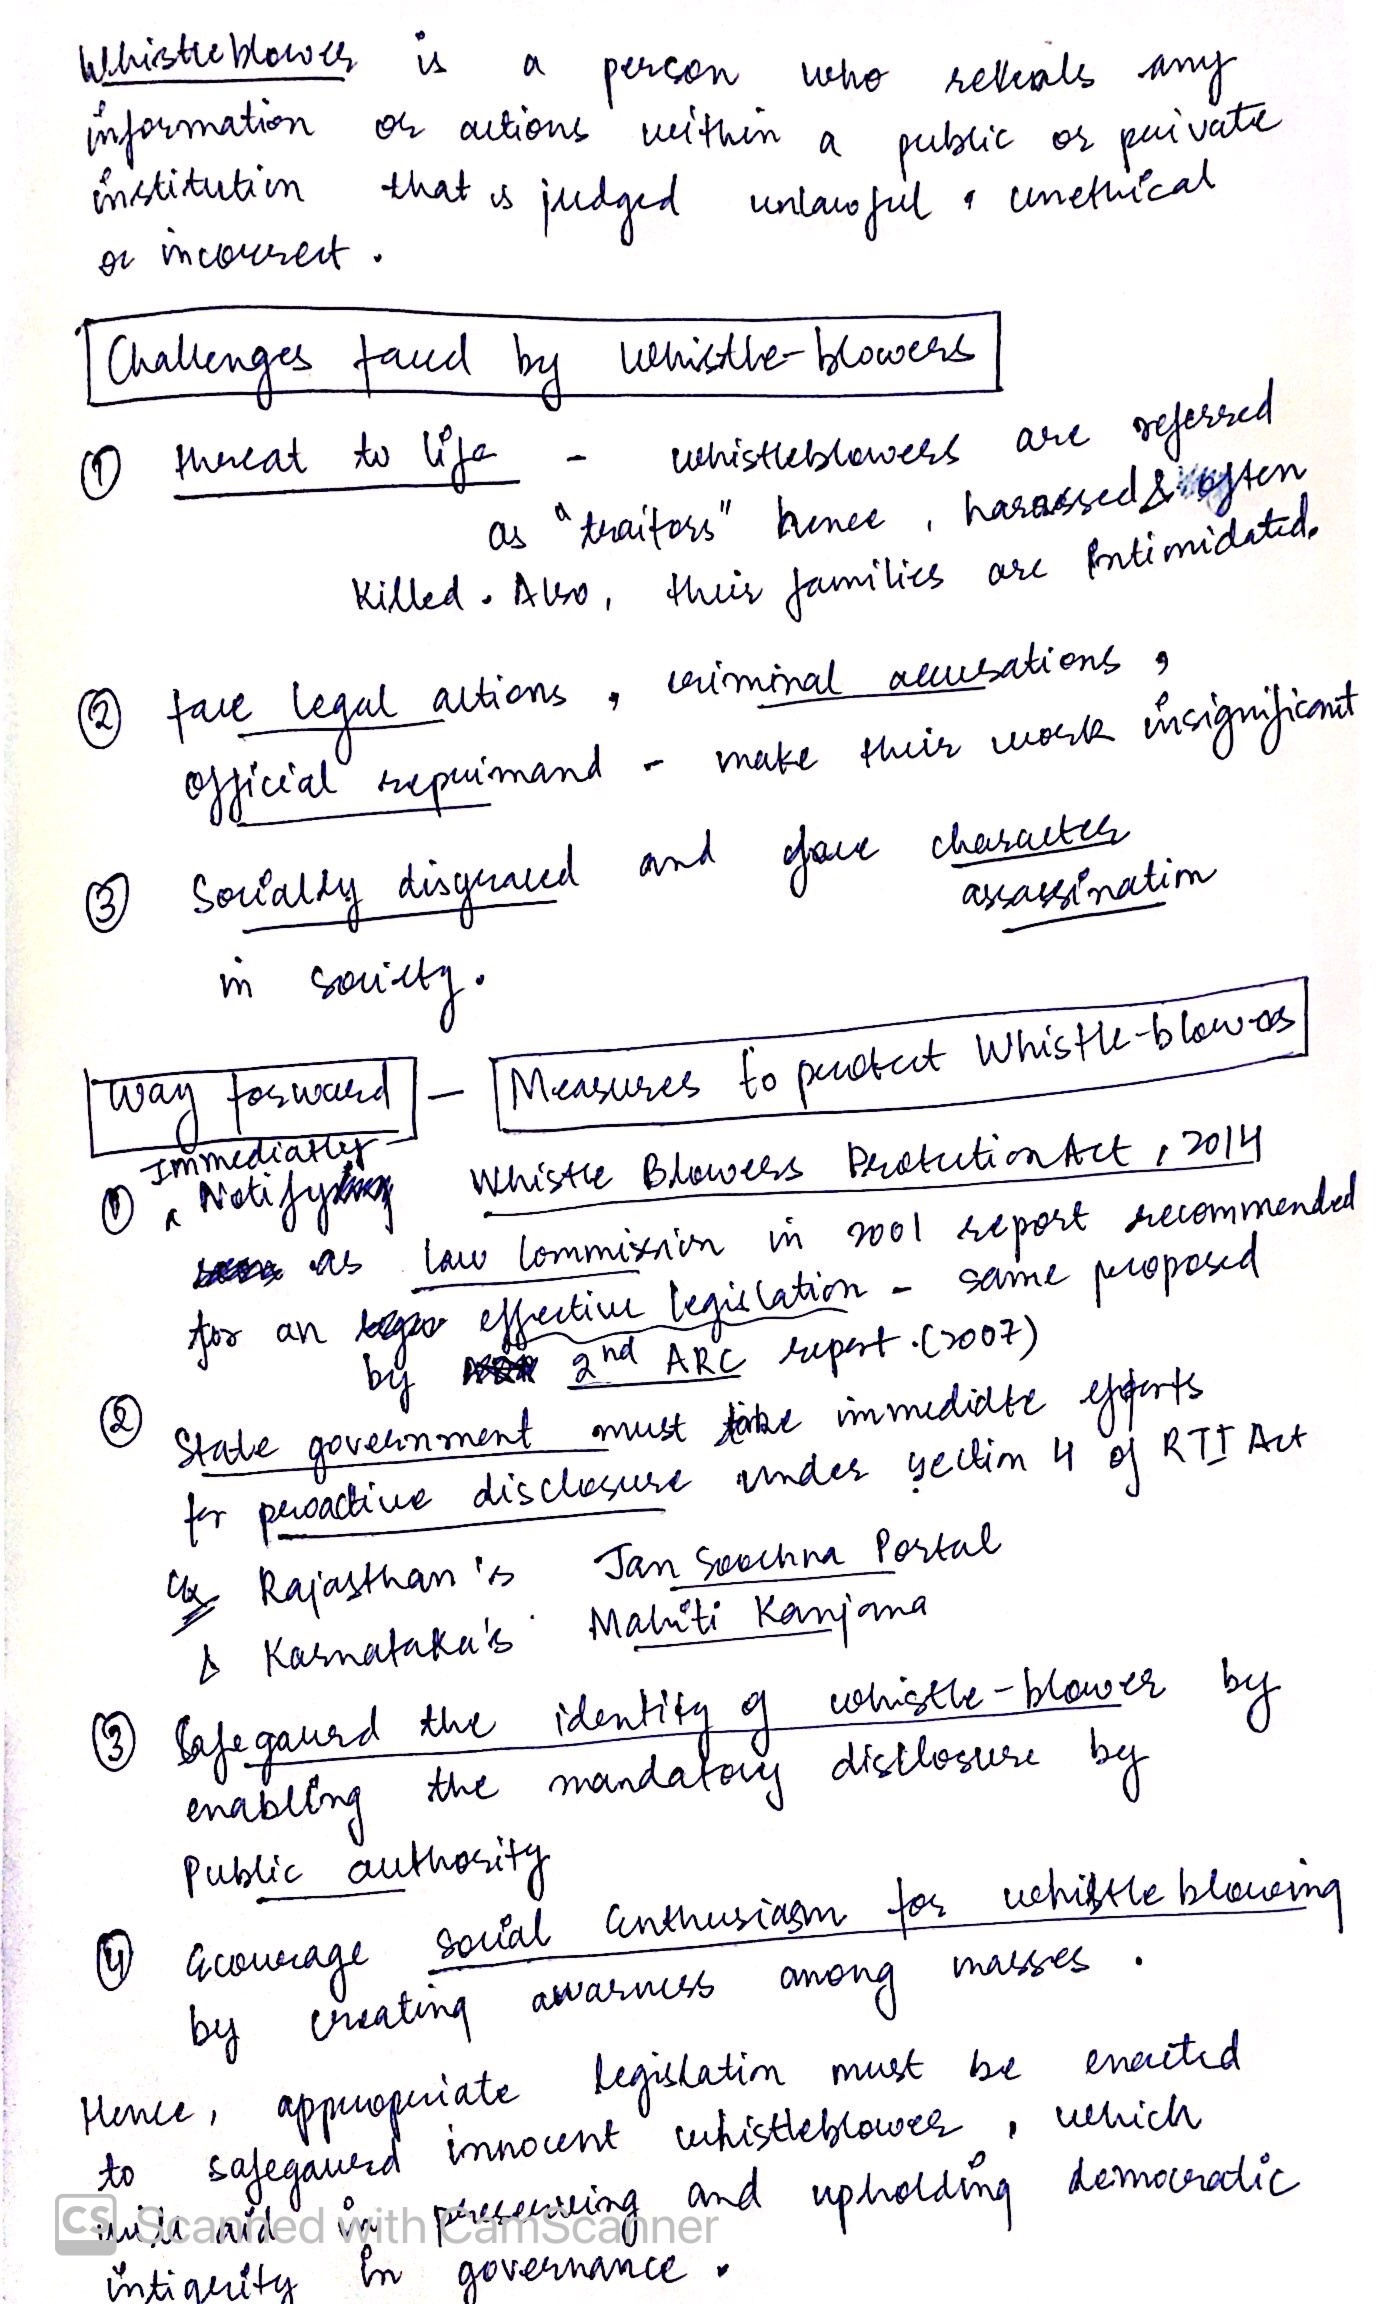 Whistleblower is a person who reveals any
information or actions within a public or private
institution that is judged unlawful, unethical
or incorrect.
Challenges faced by Whistle-blowers
① threat to life - whistleblowers are referred
as "traitors" hence, harassed & often
killed. Also, their families are intimidated.
② face legal actions, criminal accusations,
official reprimand - make their work insignificant
③ Socially disgraced and face character
assassination
in society.
Way forward - Measures to protect Whistle-blowers
Immediatley
① Notify Whistle Blowers Protection Act, 2014
as Law Commission in 2001 report recommended
for an effective legislation - same proposed
by 2nd ARC report. (2007)
② State government must take immediate efforts
for proactive disclosure under section 4 of RTI Act
eg Rajasthan's Jan Soochna Portal
& Karnataka's Mahiti Kanjana
③ Safegaurd the identity of whistle-blower by
enabling the mandatory disclosure by
Public authority
④ Ecourage social enthusiasm for whistle blowing
by creating awarness among masses.
Hence, appropriate legislation must be enacted
to safegaurd innocent whistleblower, which
will aid in preserving and upholding democratic
intigrity in governance.
CS Scanned with CamScanner